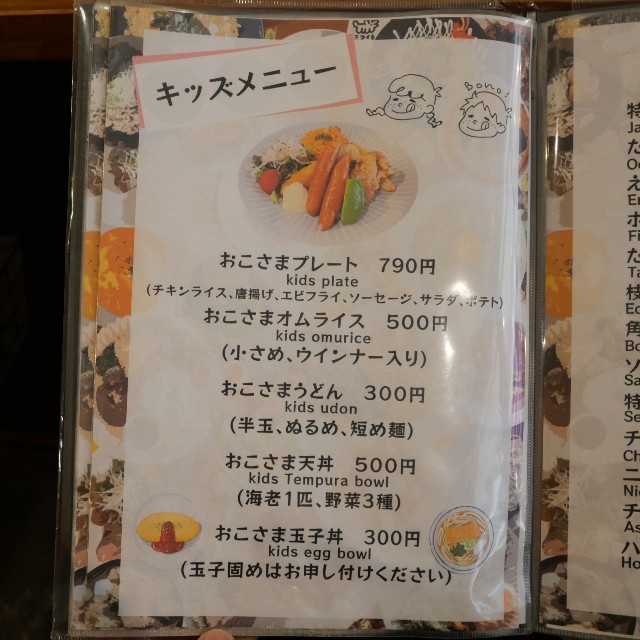 キッズメニュー
おこさまプレート 790円
kids plate
(チキンライス、唐揚げ、エビフライ、ソーセージ、サラダ、ポテト)
おこさまオムライス 500円
kids omurice
(小さめ、ウインナー入り)
おこさまうどん 300円
kids udon
(半玉、ぬるめ、短め麺)
おこさま天丼 500円
kids Tempura bowl
(海老1匹、野菜3種)
おこさま玉子丼 300円
kids egg bowl
(玉子固めはお申し付けください)
特
た
え
ホ
Fi
た
Ta
枝
角
Bo
ソ
Sa
特
Se
チ
Ch
ニ
Ni
チ
As
ハ
Ho